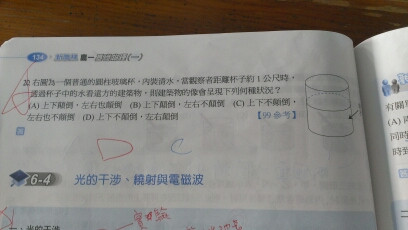 134
20. 右圖為一個普通的圓柱玻璃杯，內裝清水，當觀察者距離杯子約 1 公尺時，
透過杯子中的水看遠方的建築物，則建築物的像會呈現下列何種狀況？
(A) 上下顛倒，左右也顛倒 (B) 上下顛倒，左右不顛倒 (C) 上下不顛倒，
左右也不顛倒 (D) 上下不顛倒，左右顛倒 【99 參考】
答
D C
6-4 光的干涉、繞射與電磁波
光的干涉
有關
(A)
同時
時到